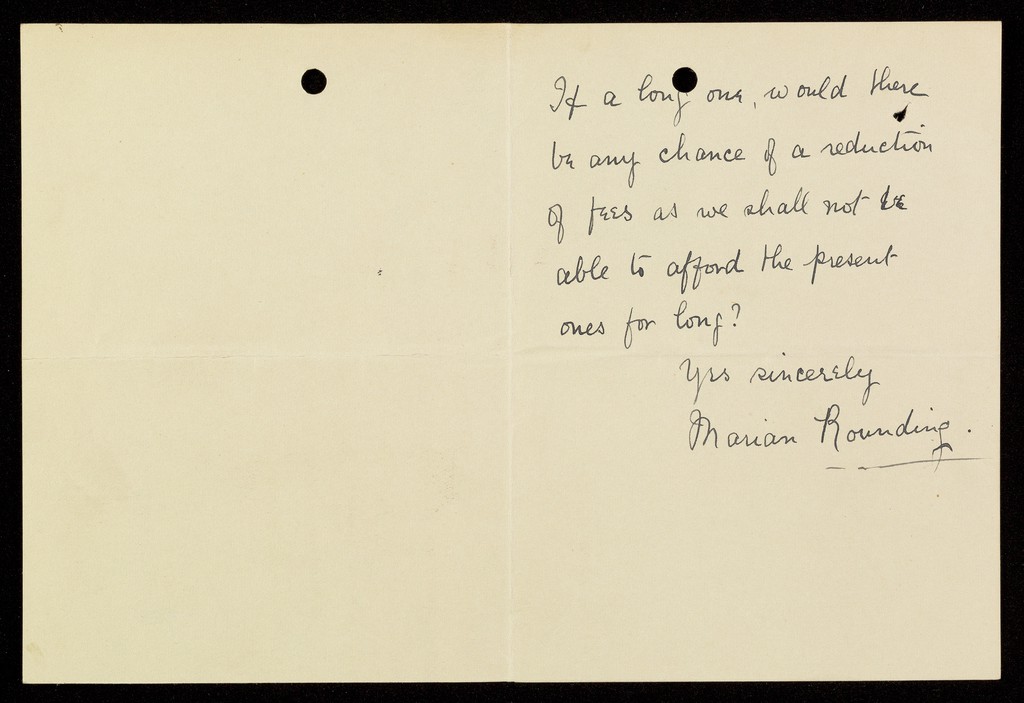 If a long one, would there
be any chance of a reduction
of fees as we shall not be
able to afford the present
ones for long?
Yrs sincerely
Marian Rounding.